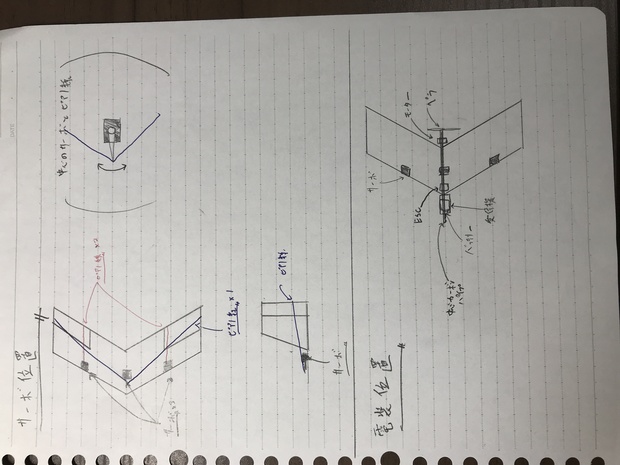 サーボ位置
ピアノ線×2
ピアノ線×1
サーボ×3
中心のサーボとピアノ線
ピアノ線
サーボ
電装位置
サーボ
モーター
ペラ
ESC
バッテリー
受信機
中心カーボンパイプ